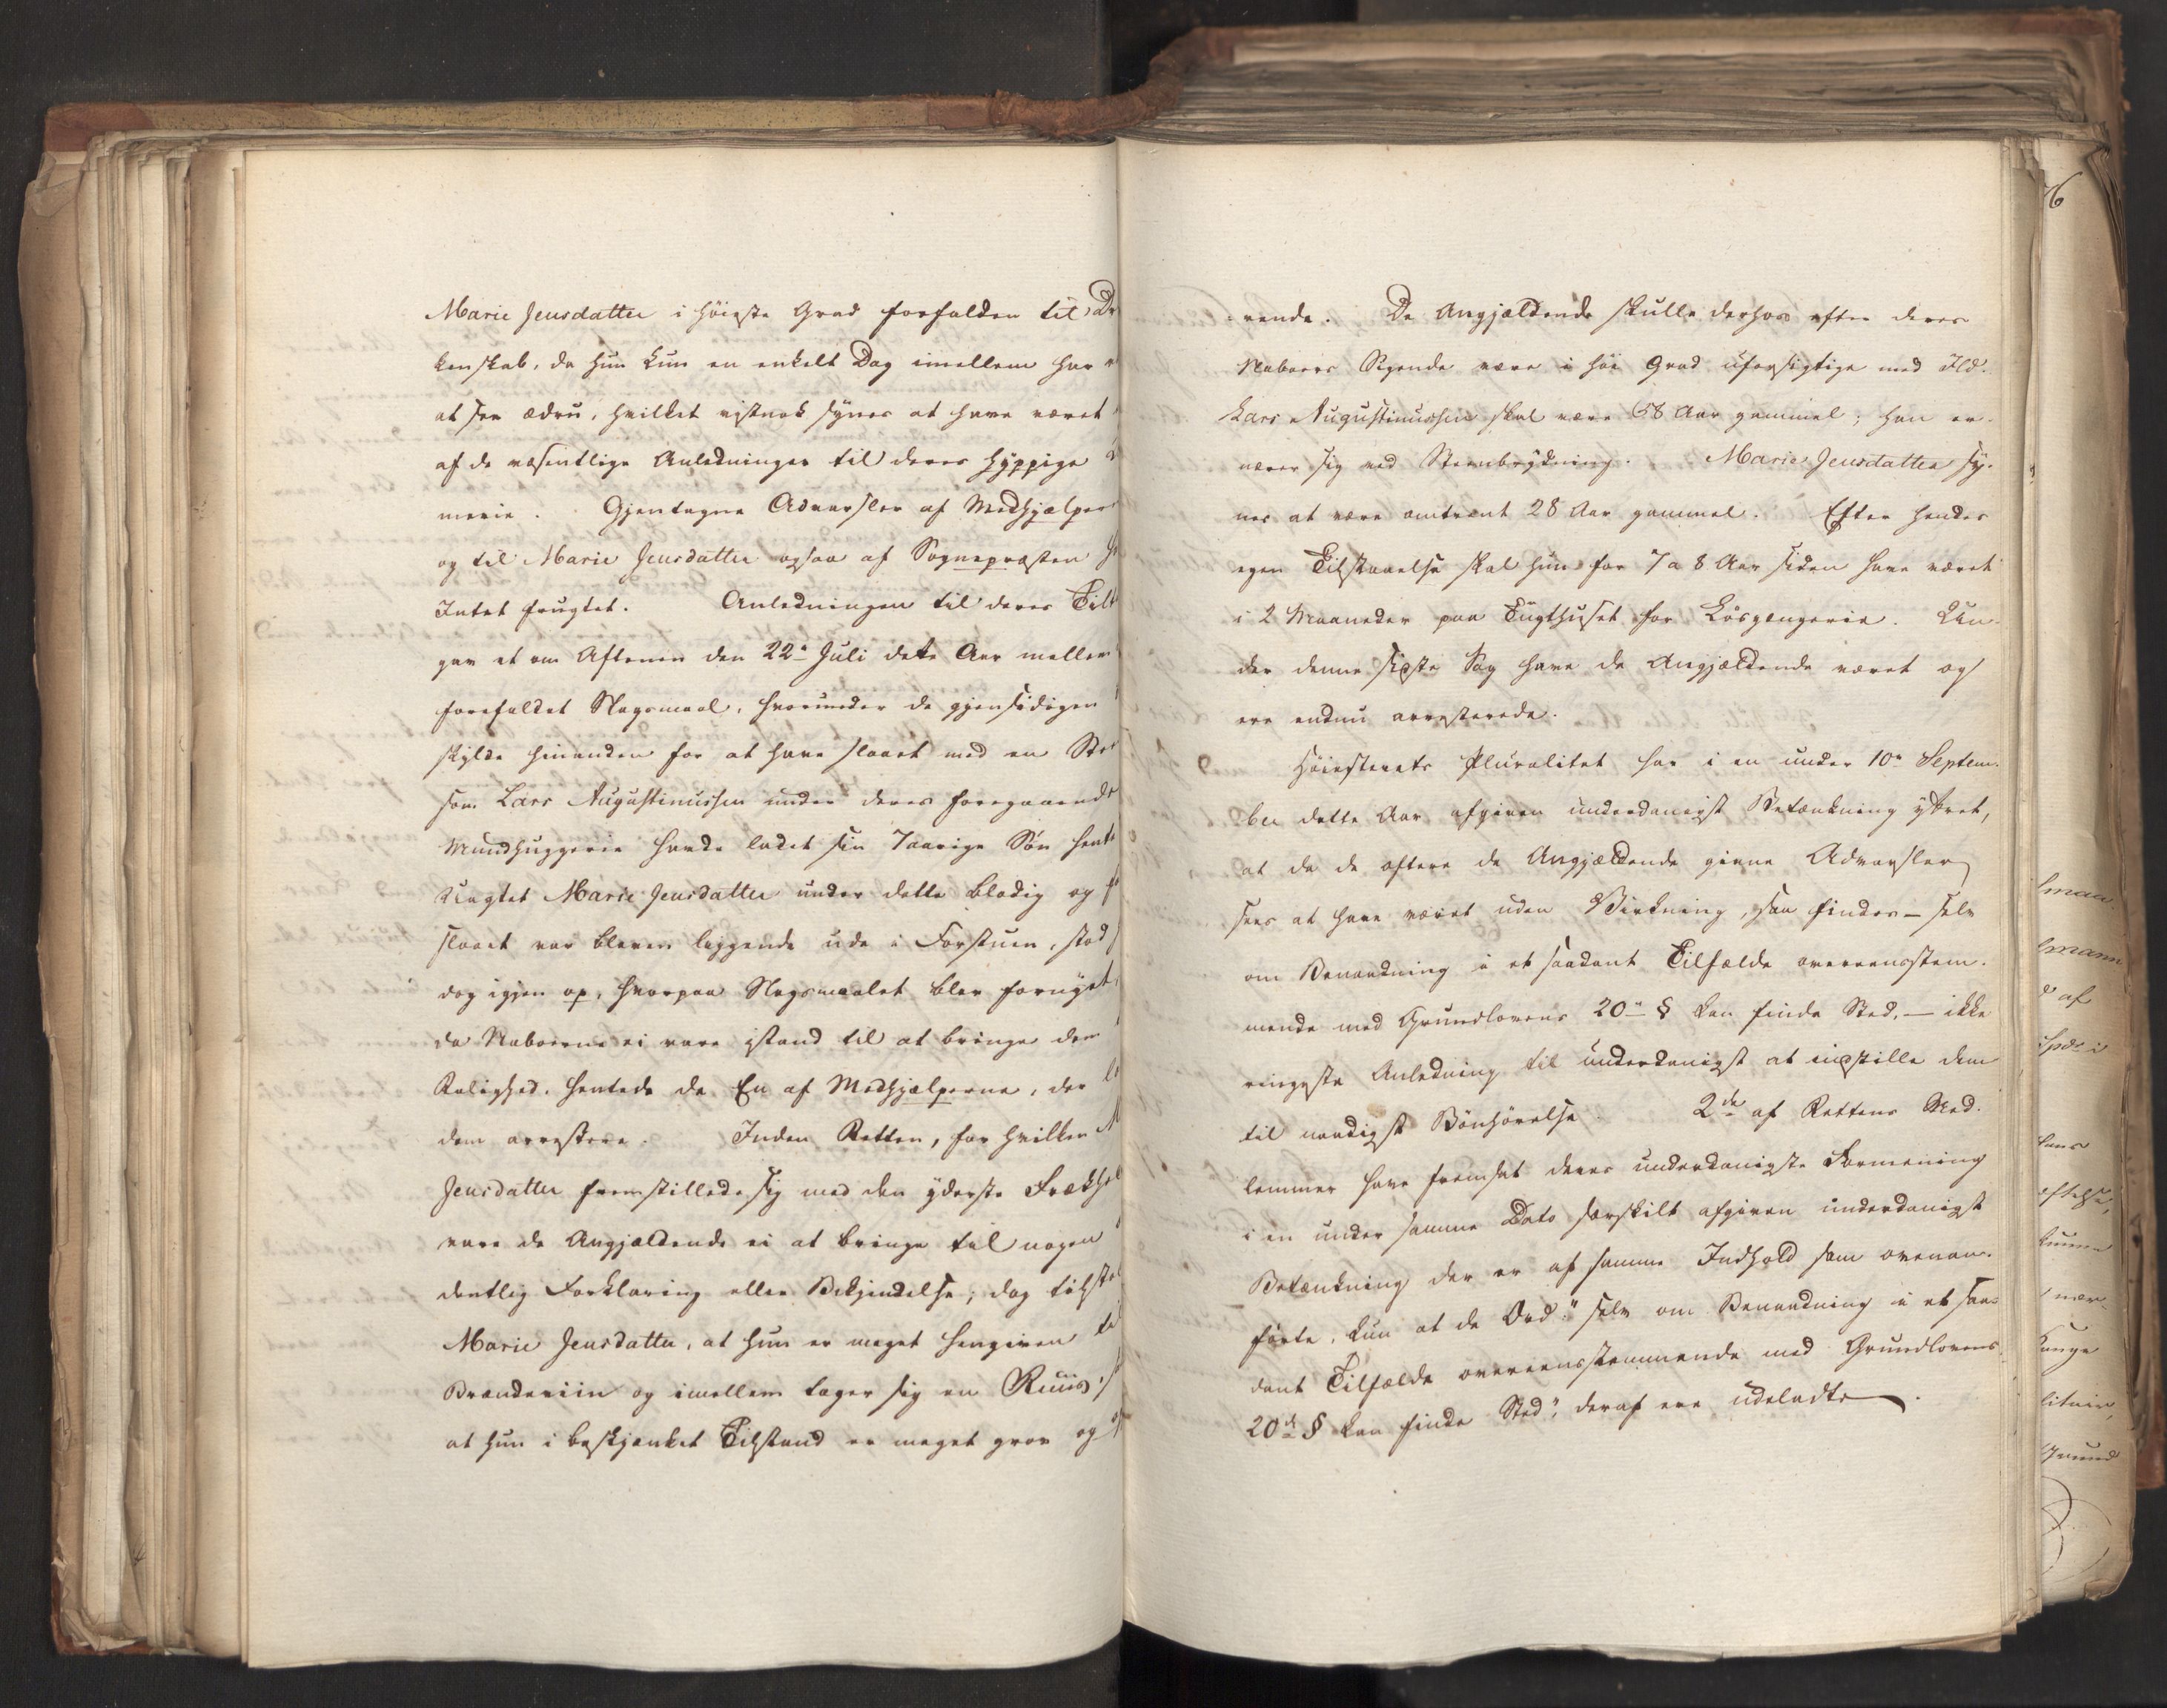 Marie Jensdatter i høieste Grad forfalden til Dr
kenskab, da hun kun en enkelt Dag imellem har
at see ædru, hvilket vistnok synes at have været
af de væsentlige Anledninger til deres hyppige
merie. Gjentagne Advarsler af Medhjælper
og til Marie Jensdatter ogsaa af Sognepræsten h
Intet frugtet. Anledningen til deres Tilt
gav et om Aftenen den 22de Juli dette Aar mellem
forefaldet Slagsmaal, hvorunder de gjensidigen
skylde hinanden for at have slaaet med en Sto
som Lars Augustinussen under deres foregaaende
Mundhuggerie havde ladet sin 7aarige Søn hente
Uagtet Marie Jensdatter under dette blodig og f
slaaet var bleven liggende ude i Forstuen, stod
dog igjen op, hvorpaa Slagsmaalet blev fornyet,
da Naboerne ei vare istand til at bringe dem
Rolighed, hentede de En af Medhjælperne, der l
dem arrestere. Inden Retten, for hvilken M
Jensdatter fremstillede sig med den yderste Frækhe
vare de Angjældende ei at bringe til nogen
dentlig Forklaring eller Bekjendelse; dog tilsto
Marie Jensdatter, at hun er meget hengiven til
Brændeviin og imellem tager sig en Ruus,
at hun i beskjænket Tilstand er meget grov og
rende. De Angjældende skulle derhos efter deres
Naboers Sigende være i høi Grad uforsigtige med Ild.
Lars Augustinussen skal være 58 Aar gammel; han er-
nærer sig ved Steenbrydning. Marie Jensdatter sy-
nes at være omtrent 28 Aar gammel. Efter hendes
egen Tilstaaelse skal hun for 7 a 8 Aar siden have været
i 2 Maaneder paa Tugthuset for Løsgængerie. Un-
der denne sidste Sag have de Angjældende været og
ere endnu arresterede.
Høiesterets Pluralitet har i en under 10de Septem-
ber dette Aar afgiven underdanigst Betænkning yttret,
at da de oftere de Angjældende givne Advarsler
sees at have været uden Virkning, saa findes — selv
om Benaadning i et saadant Tilfælde overeensstem-
mende med Grundlovens 20de § kan finde Sted, — ikke
ringeste Anledning til underdanigst at indstille dem
til naadigst Bønhørelse. 2de af Rettens Med-
lemmer have fremsat deres underdanigste Formening
i en under samme Dato særskilt afgiven underdanigst
Betænkning der er af samme Indhold som ovenan-
førte, kun at de Ord: "selv om Benaadning i et saa-
dant Tilfælde overeensstemmende med Grundlovens
20de § kan finde Sted", deraf ere udeladte.